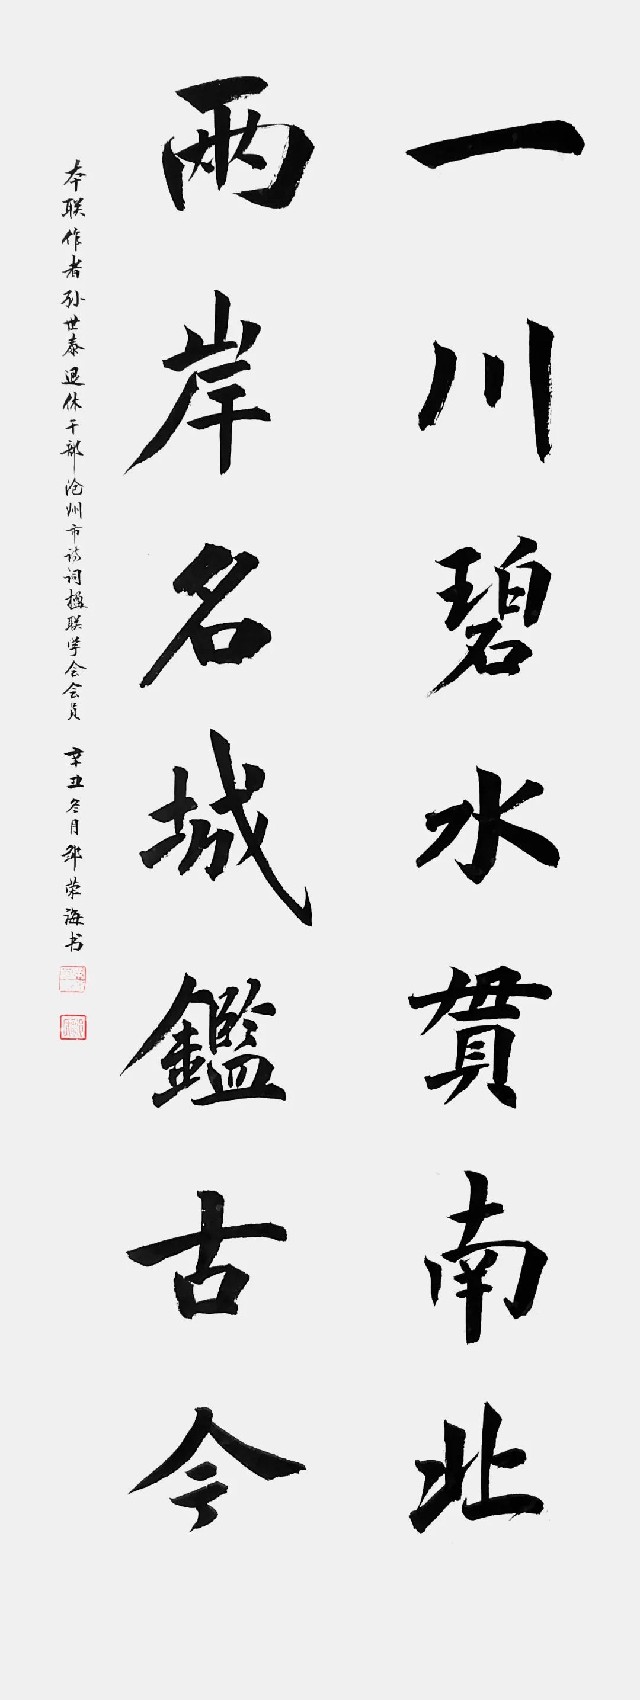 一川碧水貫南北
兩岸名城鑑古今
本联作者孙世泰退休干部沧州市诗词楹联学会会员 辛丑冬月邹荣海书